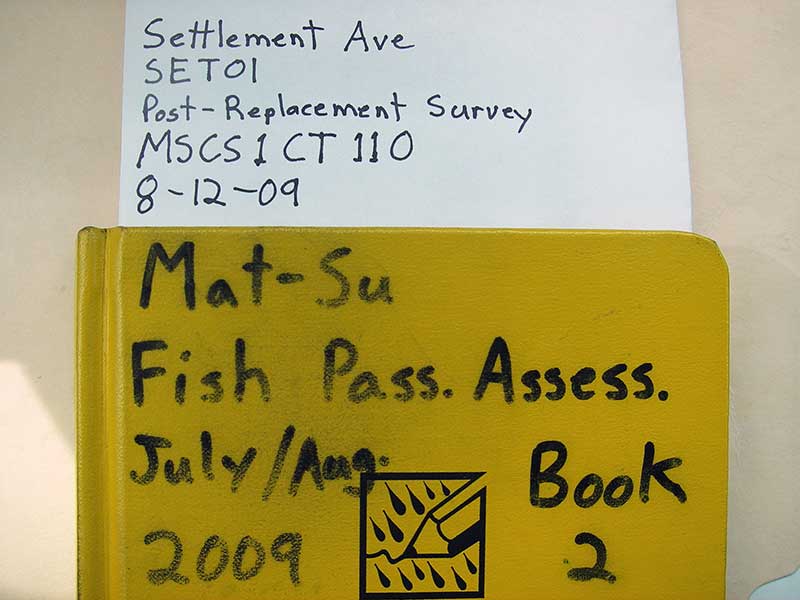 Settlement Ave
SET01
Post-Replacement Survey
MSCS1 CT 110
8-12-09
Mat-Su
Fish Pass. Assess.
July/Aug. Book
2009 2